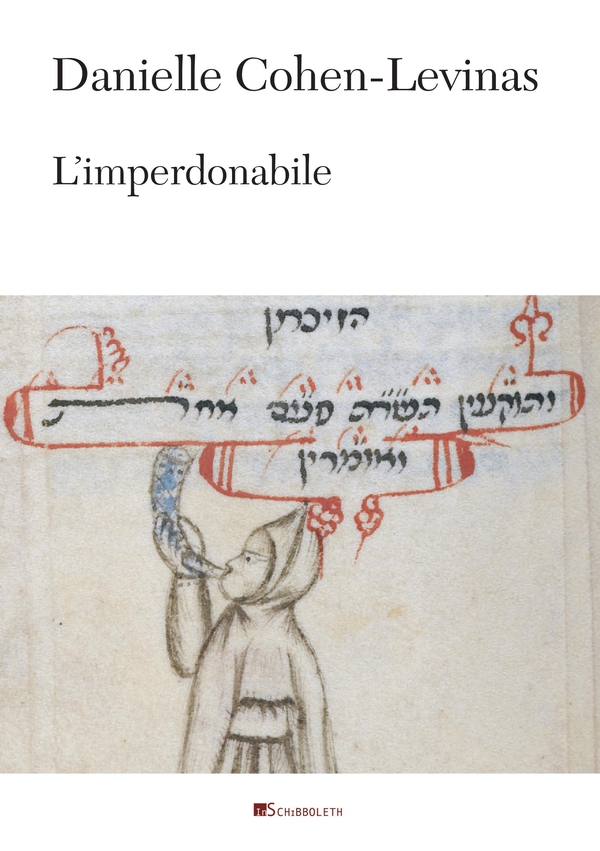 Danielle Cohen-Levinas
L'imperdonabile
הזיכרון
ותוקעין תשרת פעם אחרת
ואומרין
InSCHIBBOLETH